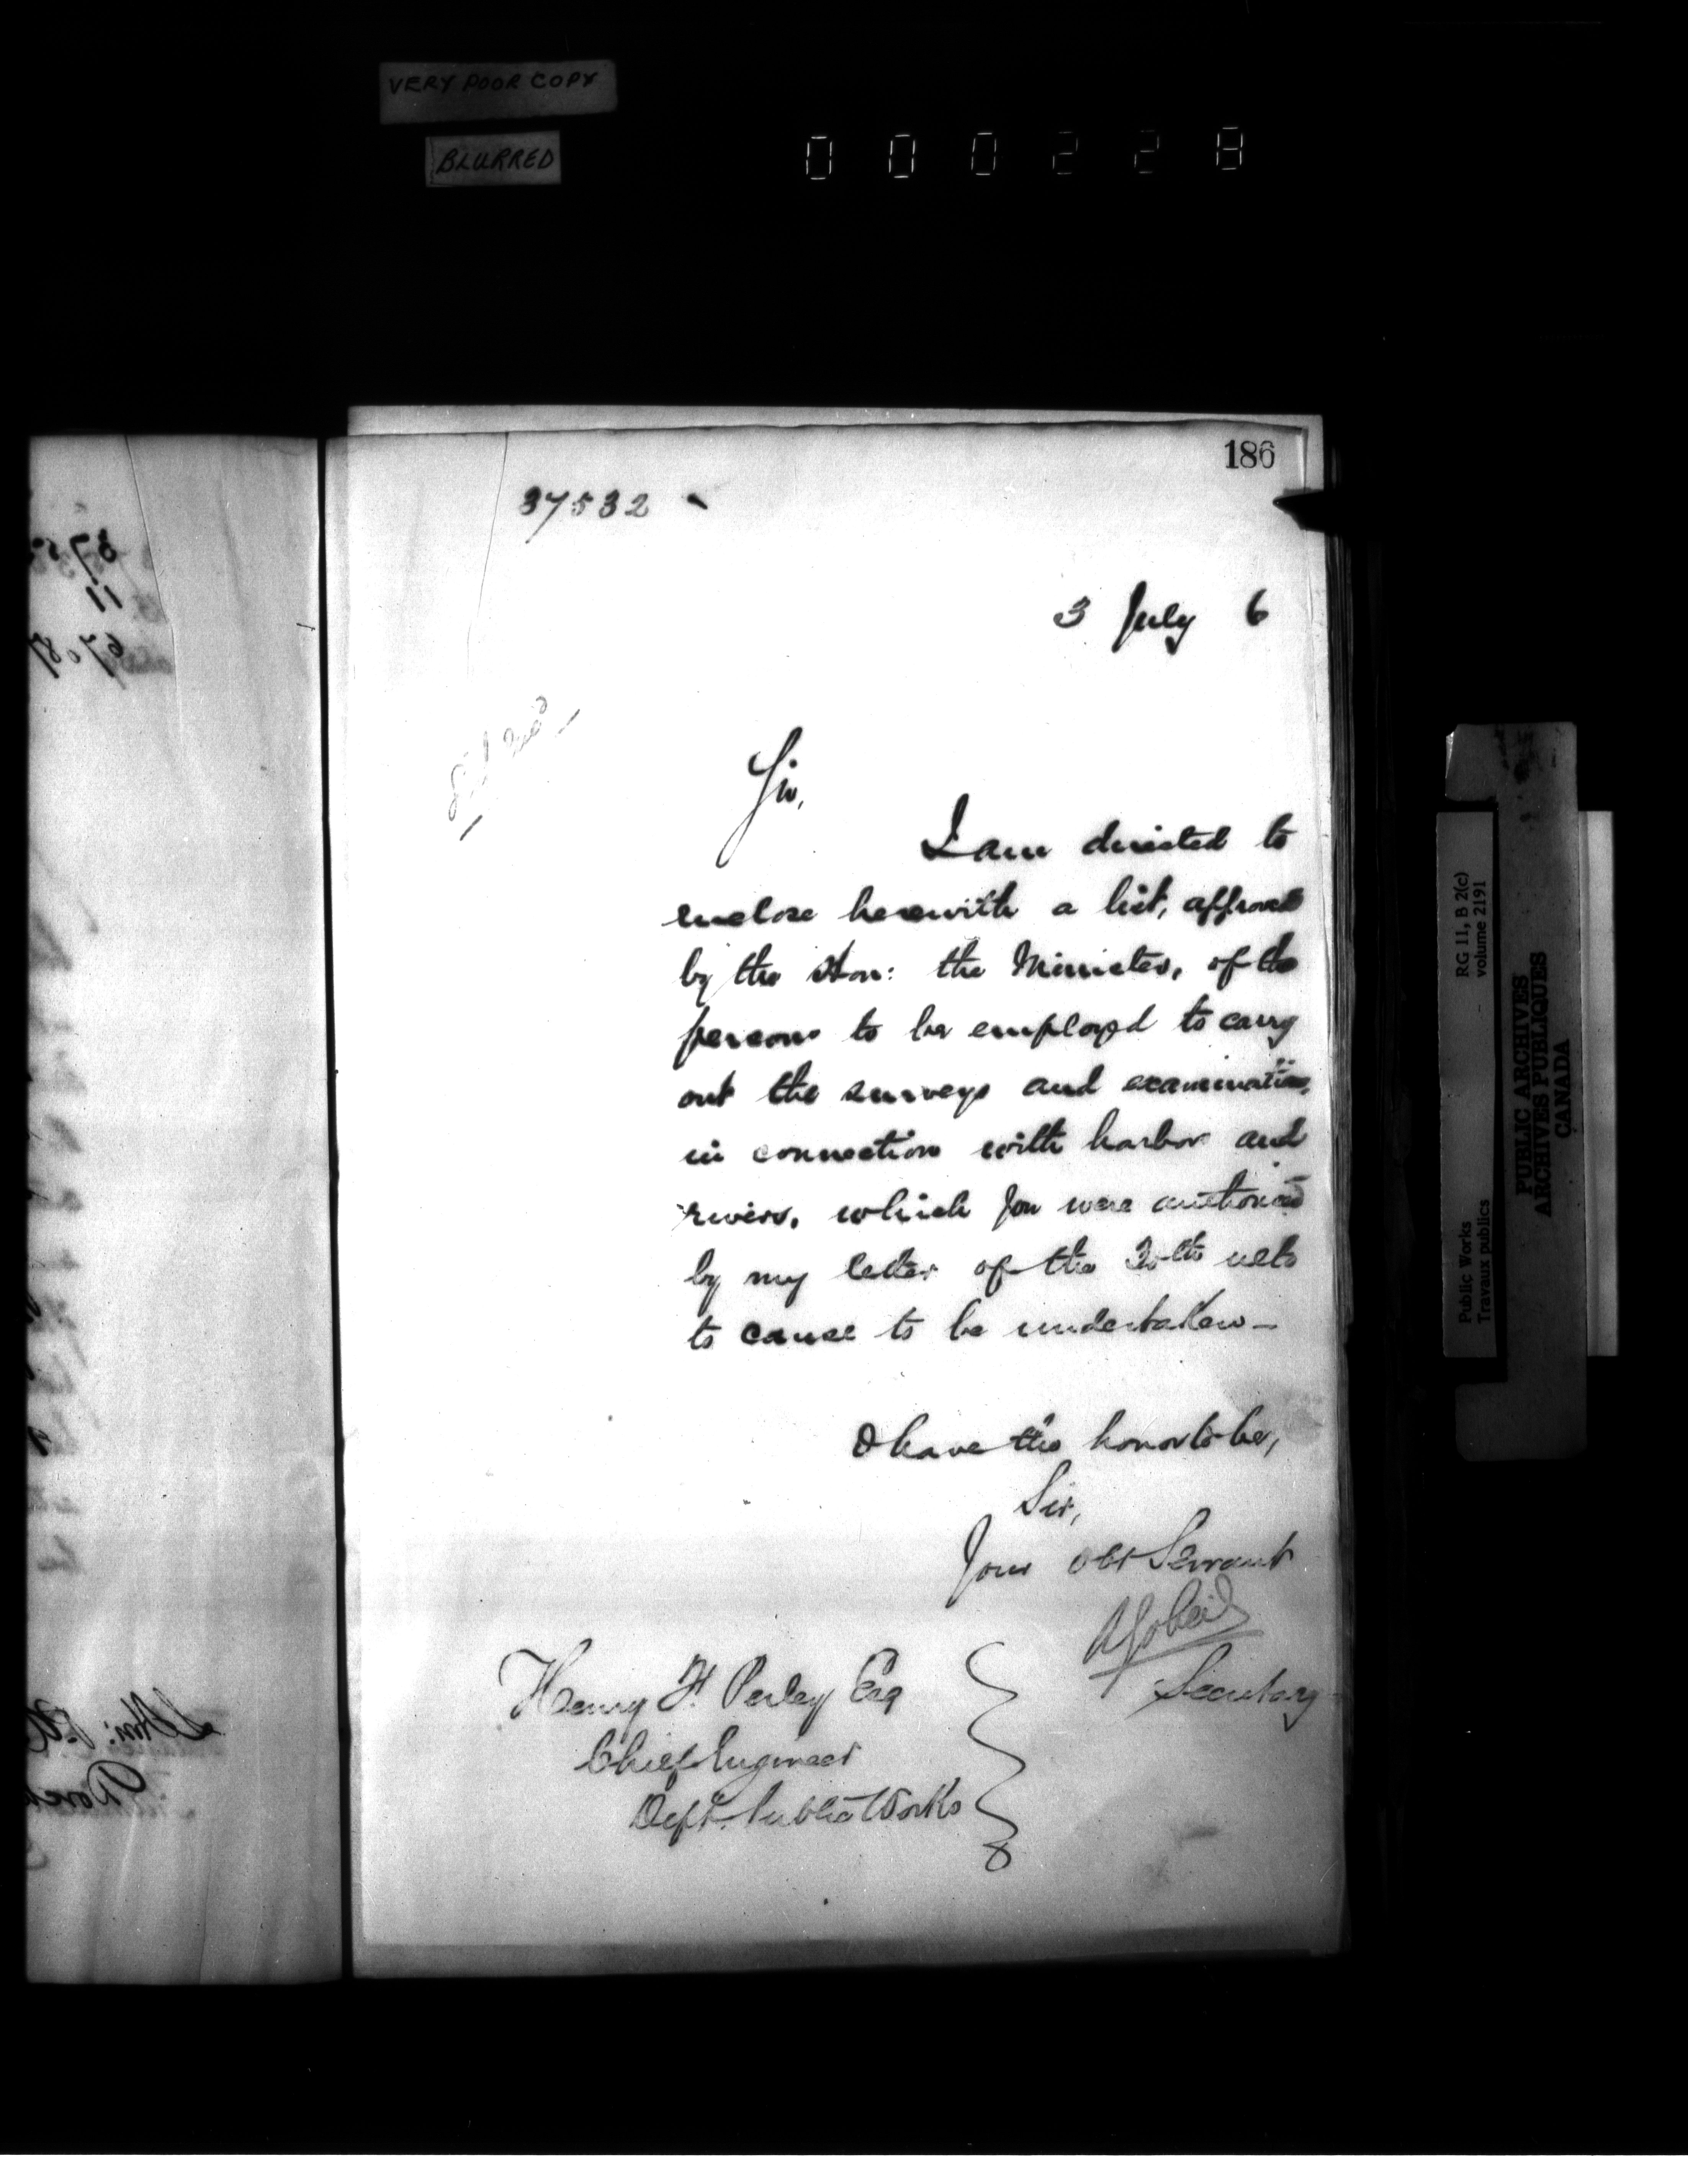 VERY POOR COPY
BLURRED
000228
186
37532
3 July 6
Sir,
I am directed to
enclose herewith a list, approved
by the Hon: the Minister, of the
persons to be employed to carry
out the surveys and examinations,
in connection with harbor and
rivers, which you were authorized
by my letter of the 30th ulto
to cause to be undertaken —
I have the honor to be,
Sir,
Your Obt Servant
A Gobeil
Secretary
Henry F. Perley Esq
Chief Engineer
Dept. Public Works
RG 11, B 2(c)
volume 2191
Public Works
Travaux publics
PUBLIC ARCHIVES
ARCHIVES PUBLIQUES
CANADA